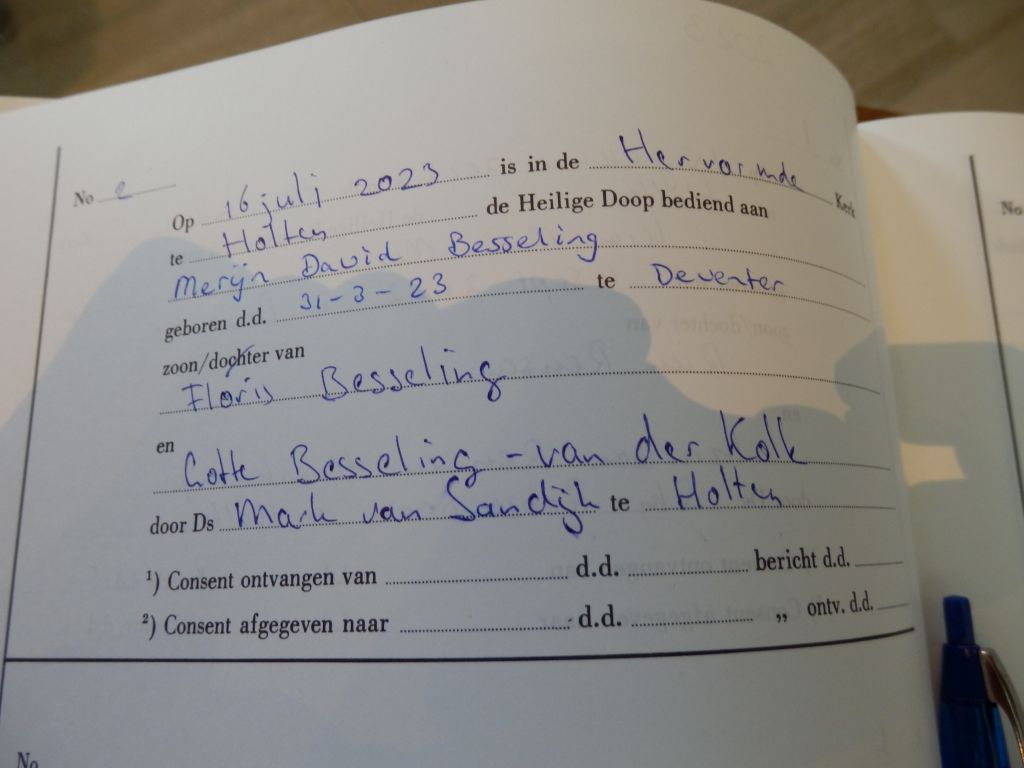 No 2
Op 16 juli 2023 is in de Hervormde Kerk
te Holten de Heilige Doop bediend aan
Merijn David Besseling
geboren d.d. 31-3-23 te Deventer
zoon/dochter van
Floris Besseling
en
Lotte Besseling - van der Kolk
door Ds Mark van Sandijk te Holten
¹) Consent ontvangen van d.d. bericht d.d.
²) Consent afgegeven naar d.d. „ ontv. d.d.
No
No